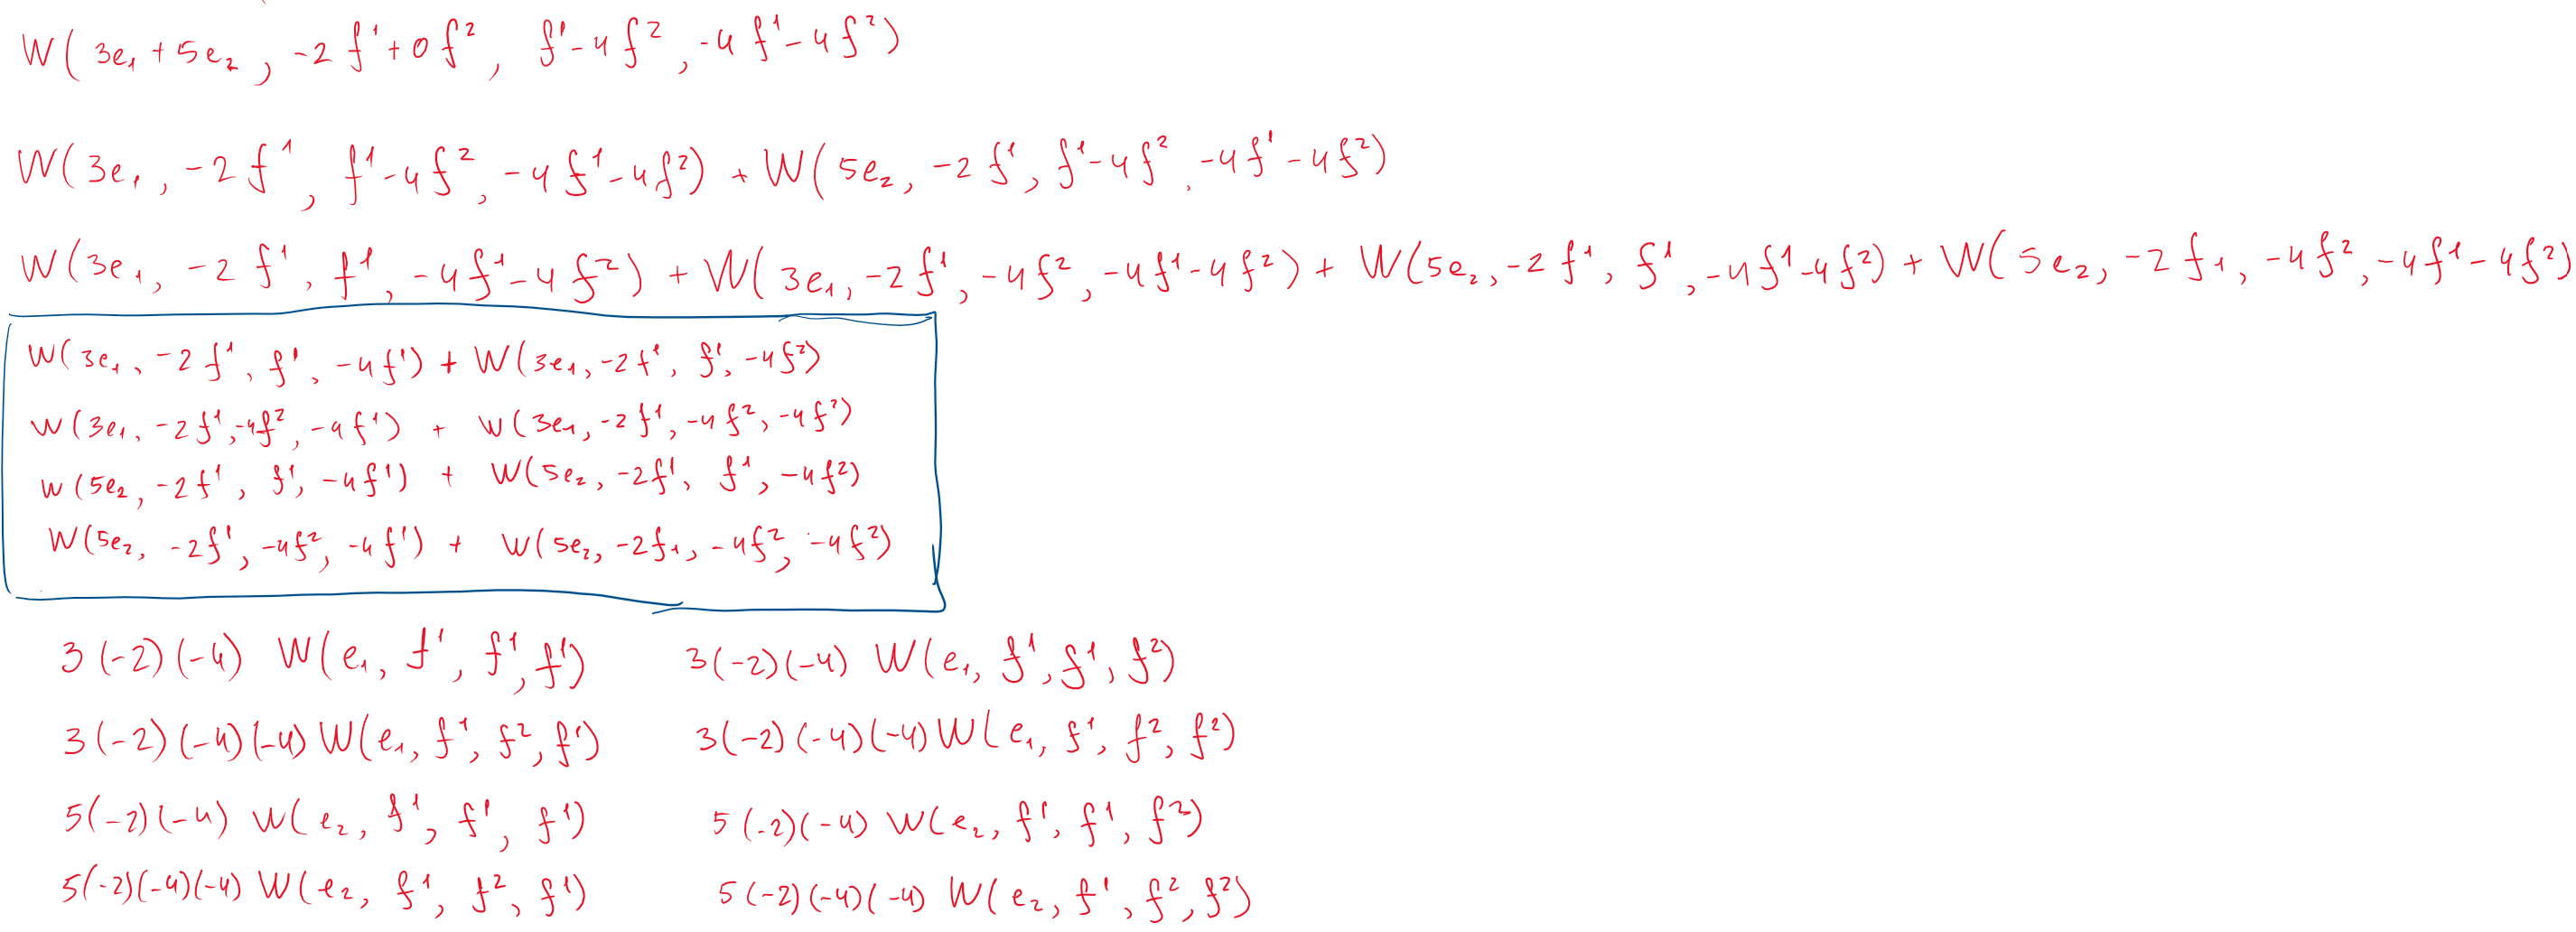 W(3e₁ + 5e₂, -2f¹ + 0f², f¹ - 4f², -4f¹ - 4f²)
W(3e₁, -2f¹, f¹ - 4f², -4f¹ - 4f²) + W(5e₂, -2f¹, f¹ - 4f², -4f¹ - 4f²)
W(3e₁, -2f¹, f¹, -4f¹ - 4f²) + W(3e₁, -2f¹, -4f², -4f¹ - 4f²) + W(5e₂, -2f¹, f¹, -4f¹ - 4f²) + W(5e₂, -2f₁, -4f², -4f¹ - 4f²)
W(3e₁, -2f¹, f¹, -4f¹) + W(3e₁, -2f¹, f¹, -4f²)
W(3e₁, -2f¹, -4f², -4f¹) + W(3e₁, -2f¹, -4f², -4f²)
W(5e₂, -2f¹, f¹, -4f¹) + W(5e₂, -2f¹, f¹, -4f²)
W(5e₂, -2f¹, -4f², -4f¹) + W(5e₂, -2f₁, -4f², -4f²)
3(-2)(-4) W(e₁, f¹, f¹, f¹) 3(-2)(-4) W(e₁, f¹, f¹, f²)
3(-2)(-4)(-4) W(e₁, f¹, f², f¹) 3(-2)(-4)(-4) W(e₁, f¹, f², f²)
5(-2)(-4) W(e₂, f¹, f¹, f¹) 5(-2)(-4) W(e₂, f¹, f¹, f²)
5(-2)(-4)(-4) W(e₂, f¹, f², f¹) 5(-2)(-4)(-4) W(e₂, f¹, f², f²)